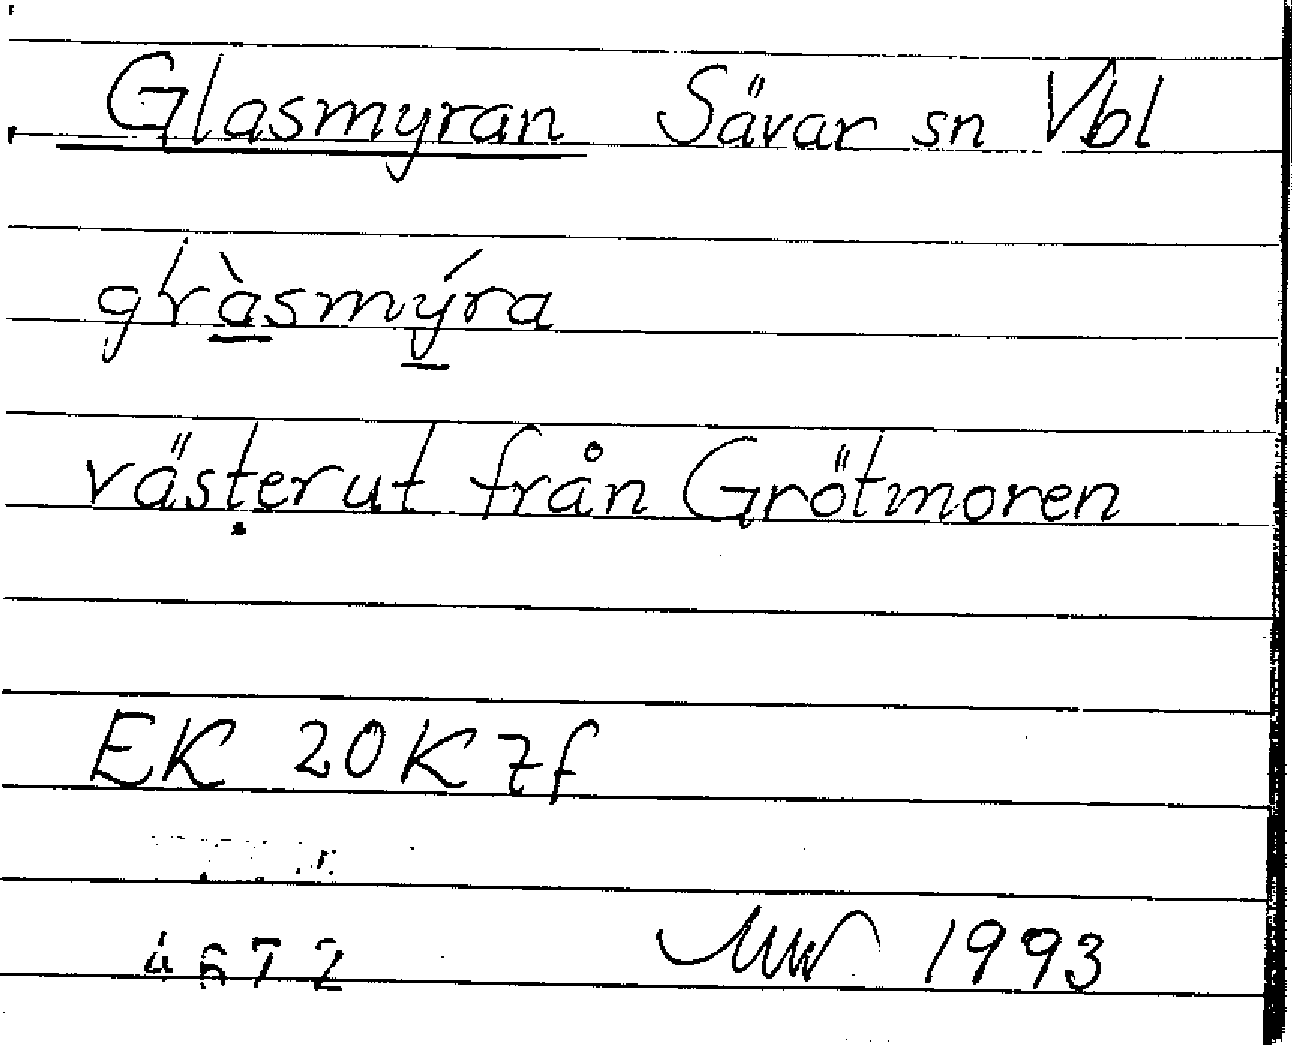 Glasmyran Sävar sn Vbl
västerut från Grötmoren
EK 20K 7f
4672
1993